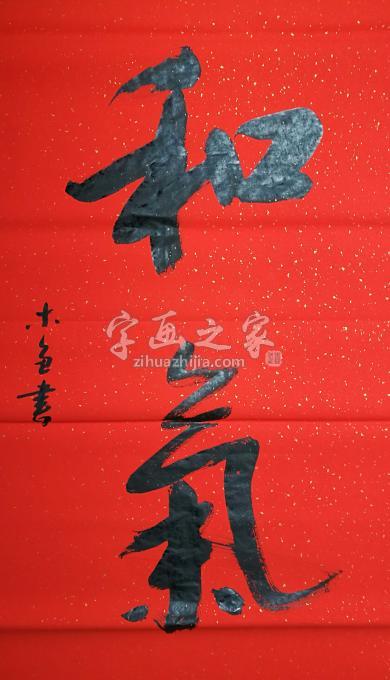 和
氣
字画之家
zihuazhijia.com